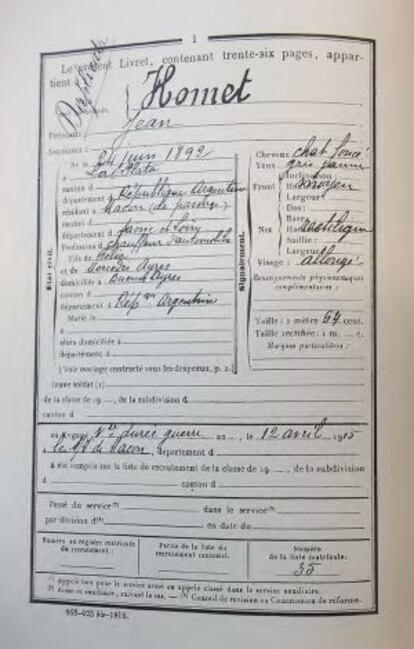 1
Le présent Livret, contenant trente-six pages, appar-
tient à
Homet
Prénoms : Jean
Surnoms :
Né le 24 juin 1892
à La Plata
canton d
département d République Argentine
résidant à Macon (de passage)
canton d
département d Saone et Loire
Profession d chauffeur d'automobile
Fils de
et de Mercedes Ayres
domiciliés à Buenos Ayres
canton d
département d Rép que Argentine
Marié le
à
alors domiciliée à
département d
[Voir mariage contracté sous les drapeaux, p. 2.]
État civil.
Signalement.
Cheveux : chat foncé
Yeux gris jaune
Front Inclinaison
Hauteur moyen
Largeur
Nez Dos :
Base
Hauteur rectiligne
Saillie :
Largeur
Visage : allongé
Renseignements physionomiques
complémentaires :
Taille : 1 mètre 64 cent.
Taille rectifiée : 1 m. c.
Marques particulières :
Jeune soldat (1)
de la classe de 19 , de la subdivision d
canton d
durée guerre , le 12 avril 1915
à Macon, département d
A été compris sur la liste de recrutement de la classe de 19 , de la subdivision
d canton d
Passé du service (2) dans le service (2)
par décision d (3) en date du
Numéro au registre matricule
du recrutement :
Partie de la liste du
recrutement cantonal.
Numéro
de la liste matricule.
35
(1) Appelé bon pour le service armé ou appelé classé dans le service auxiliaire.
(2) Armé ou auxiliaire, suivant le cas. — (3) Conseil de revision ou Commission de réforme.